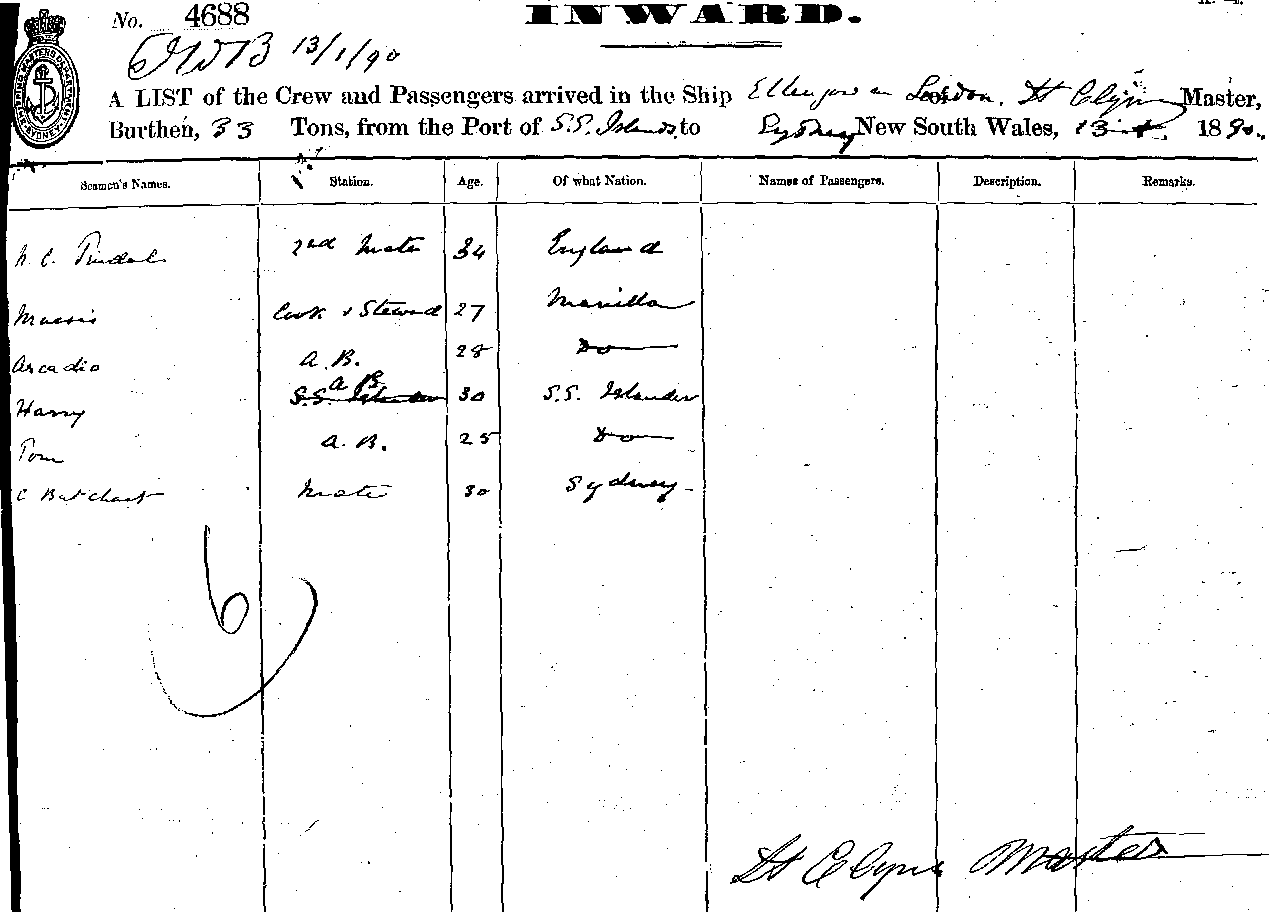 No. 4688
INWARD.
13/1/90
A LIST of the Crew and Passengers arrived in the Ship Master,
Burthen, 33 Tons, from the Port of S.S. Islands to Sydney New South Wales, 13 1890.
Seamen's Names. Station. Age. Of what Nation. Names of Passengers. Description. Remarks.
2nd Mate 34 England
Cook & Steward 27 Manilla
Arcadio A.B. 28 Do
Harry A B 30 S.S. Islander
Tom A.B. 25 Do
C Mate 30 Sydney
6
Master